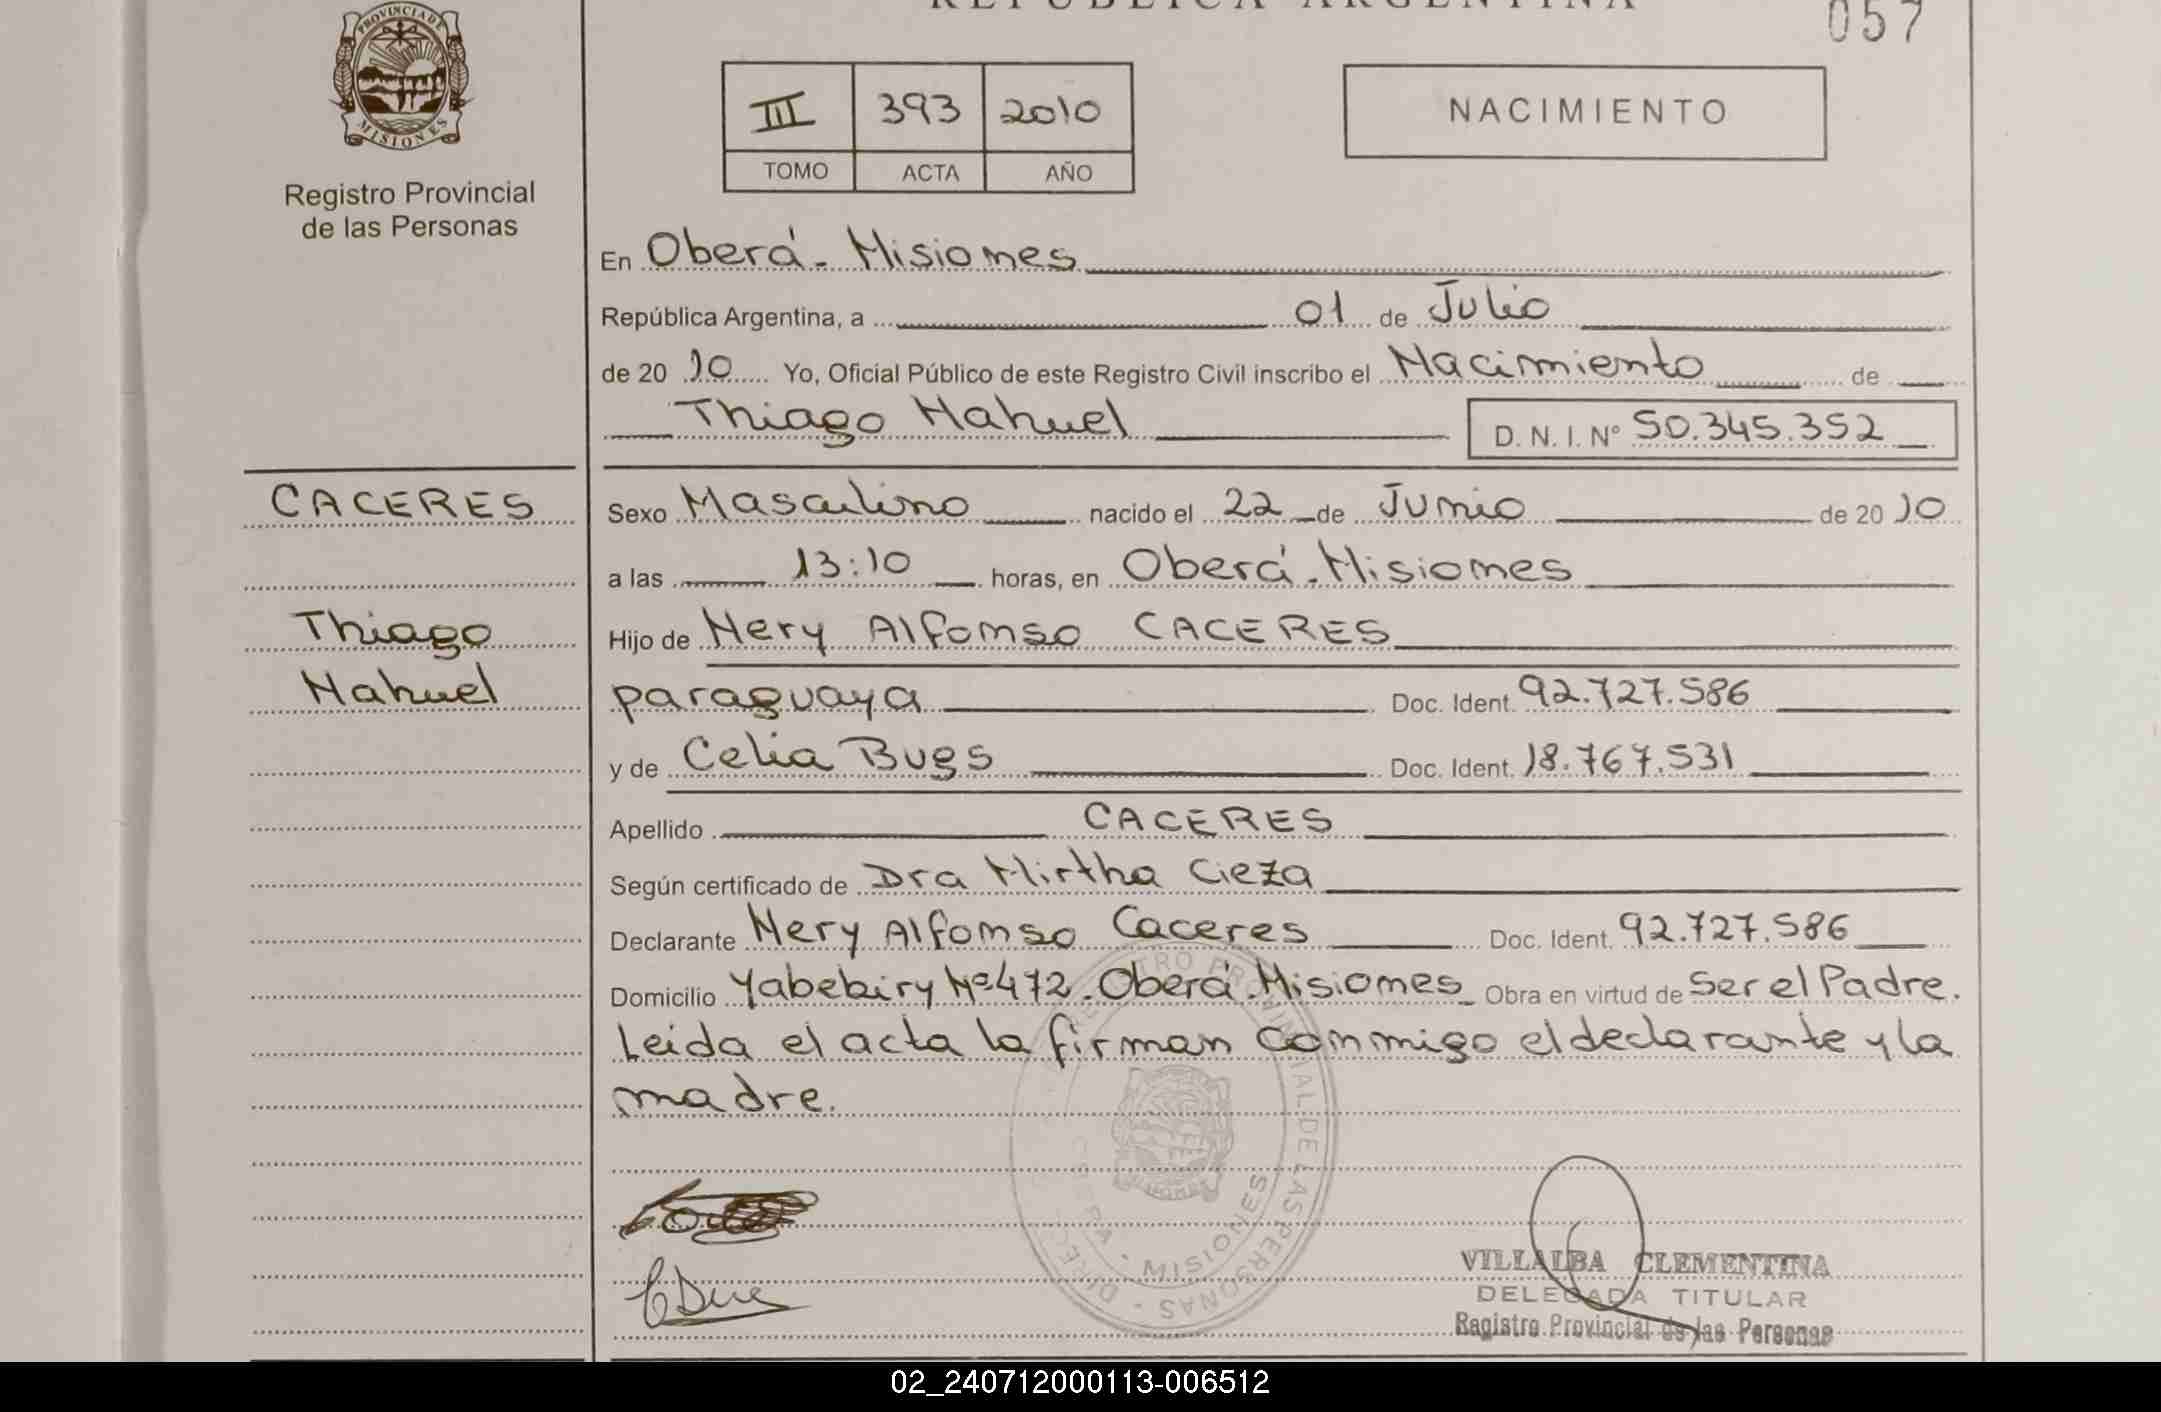 REPUBLICA ARGENTINA
057
PROVINCIA DE
MISIONES
Registro Provincial
de las Personas
III 393 2010
TOMO ACTA AÑO
NACIMIENTO
En Oberá - Misiones
República Argentina, a 01 de Julio
de 20 10 Yo, Oficial Público de este Registro Civil inscribo el Nacimiento de
Thiago Nahuel D. N. I. Nº 50.345.352
CACERES
Thiago
Nahuel
Sexo Masculino nacido el 22 de Junio de 20 10
a las 13:10 horas, en Oberá - Misiones
Hijo de Nery Alfonso CACERES
paraguaya Doc. Ident. 92.727.586
y de Celia Bugs Doc. Ident. 18.767.531
Apellido CACERES
Según certificado de Dra Mirtha Cieza
Declarante Nery Alfonso Caceres Doc. Ident. 92.727.586
Domicilio Yabebiry Nº 472. Oberá - Misiones Obra en virtud de Ser el Padre.
Leida el acta la firman conmigo el declarante y la
madre.
VILLALBA CLEMENTINA
DELEGADA TITULAR
Registro Provincial de las Personas
MISIONES
02_240712000113-006512